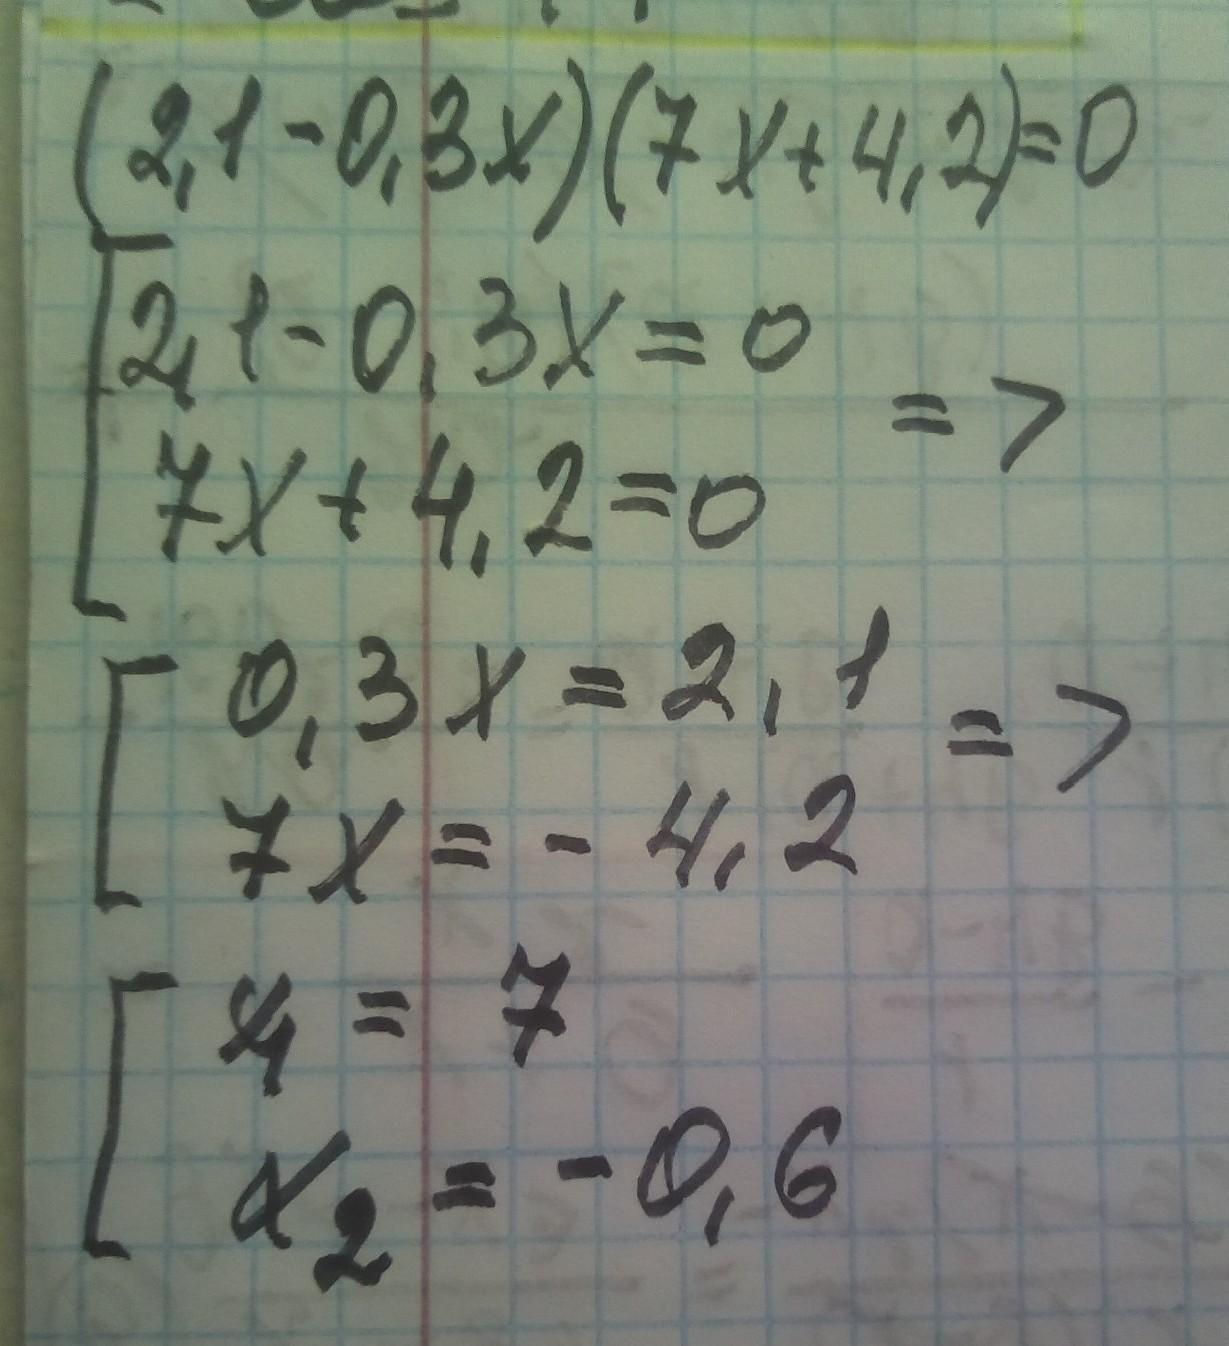 (2,1-0,3x)(7x+4,2)=0
[2,1-0,3x=0
7x+4,2=0 =>
[0,3x=2,1
7x=-4,2 =>
[x1=7
x2=-0,6